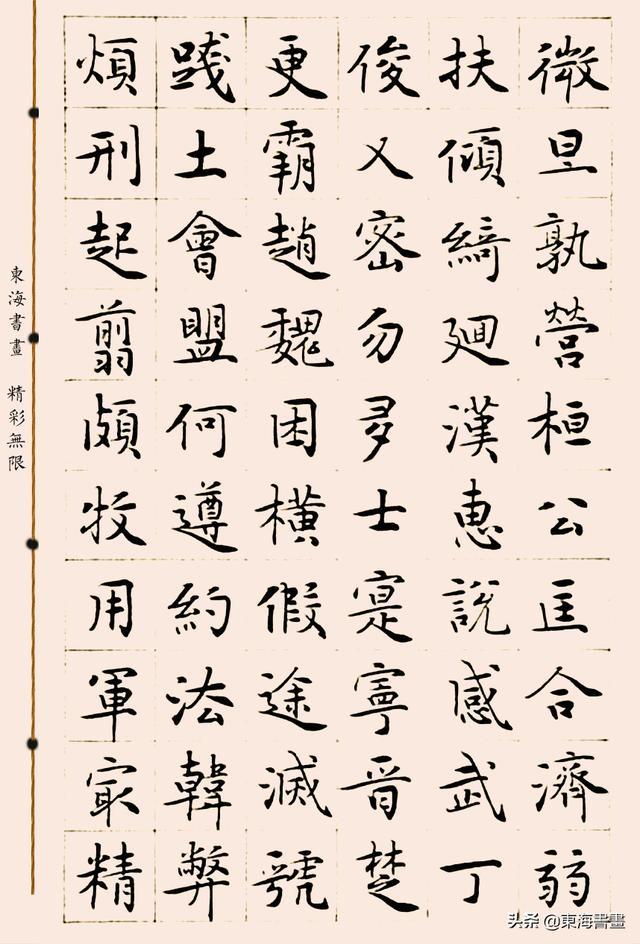 微旦孰營桓公匡合濟弱
扶傾綺廻漢惠說感武丁
俊乂密勿多士寔寧晉楚
更霸趙魏困橫假途滅虢
踐土會盟何遵約法韓弊
煩刑起翦頗牧用軍宼精
東海書畫 精彩無限
头条 @東海書畫